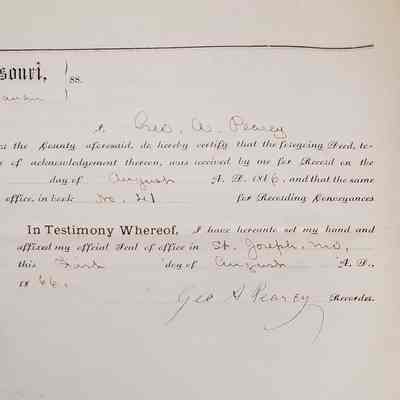 souri, } ss.
I Geo. A. Pearcy
the County aforesaid, do hereby certify that the foregoing Deed, to-
of acknowledgement thereon, was received by me for Record on the
day of August A. D. 1866, and that the same
office, in book No. 41 for Recording Conveyances
In Testimony Whereof, I have hereunto set my hand and
affixed my official Seal of office in St. Joseph, Mo,
this day of August A. D.,
1866.
Geo A Pearcy Recorder.